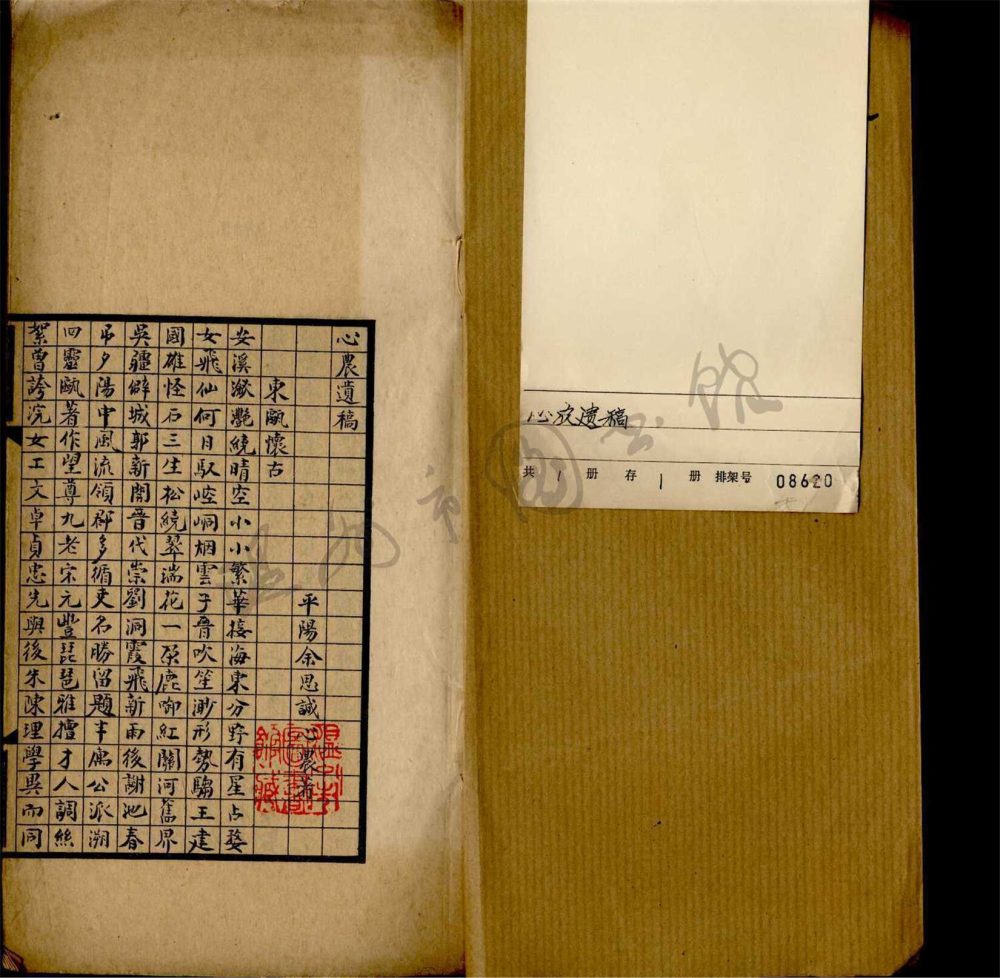 心農遺稿
平陽余思誠心農著
東甌懷古
安溪瀲灩繞晴空小小繁華接海東分野有星占婺
女飛仙何日馭崆峒烟雲子晉吹笙渺形勢騶王建
國雄怪石三生松繞翠湍花一朶鹿啣紅關河舊界
吳疆僻城郭新開晉代崇劉洞霞飛新雨後謝池春
弔夕陽中風流領郡多循吏名勝留題半寓公派溯
四靈甌著作望尊九老宋元豐琵琶雅擅才人調絲
絮曾誇浣女工文卓貞忠先與後朱陳理學異而同
心农遗稿
共 1 册 存 1 册 排架号 08620
温州市圖書館藏
温州市圖書館